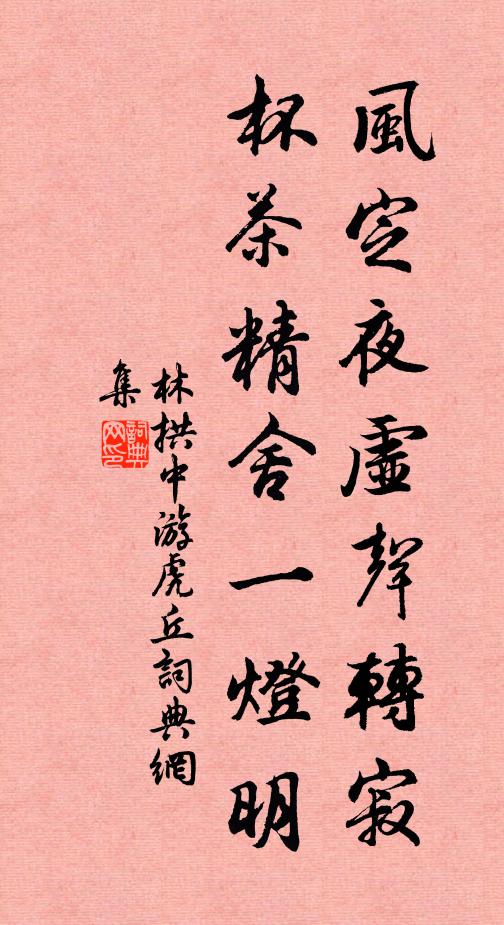 風定夜虛聲轉寂
杯茶精舍一燈明
林拱中游虎丘詞典網
集
詞典網印